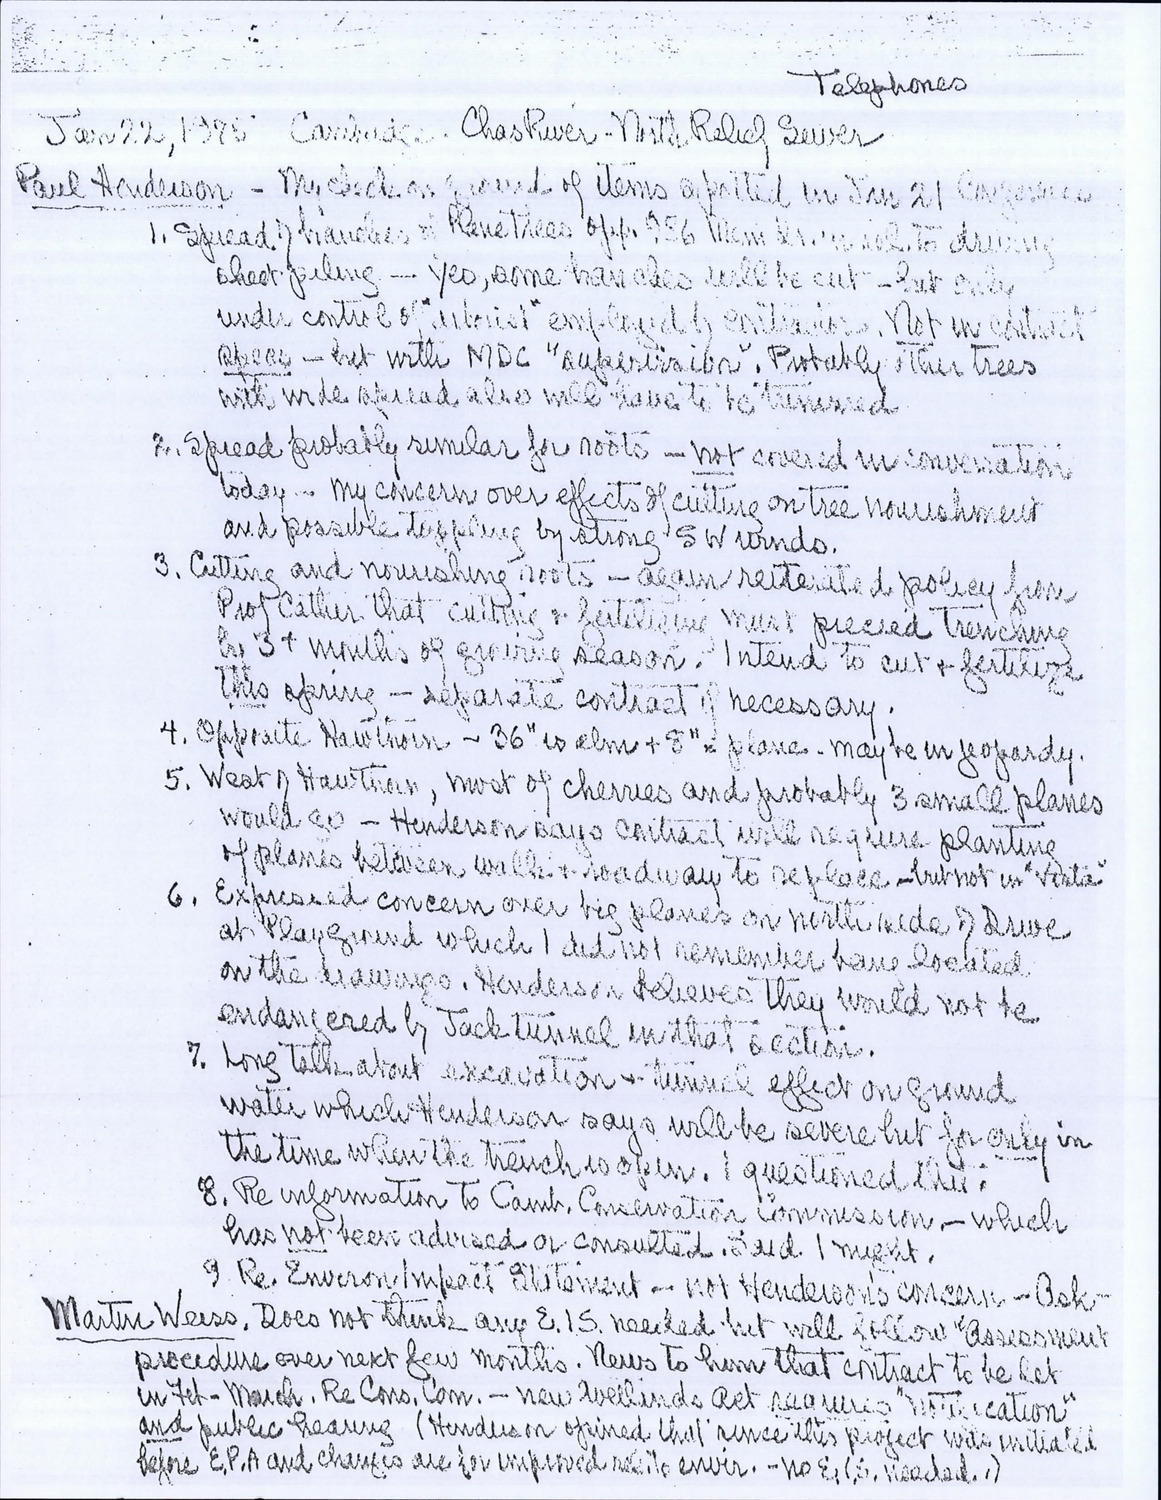 Telephones
Jan 22, 1975 Cambridge - Chas River - North Relief Sewer
Paul Henderson - My check on ground of items spotted in Jan 21 Conference
1. Spread of branches of Plane Trees opp. 986 Mem Dr. in rel. to driving
sheet piling — Yes, some branches will be cut - but only
under control of "arborist" employed by contractor. Not in contract
specs — but with MDC "supervision". Probably other trees
with wide spread also will have to be trimmed
2. Spread probably similar for roots — not covered in conversation
today -- My concern over effects of cutting on tree nourishment
and possible toppling by strong SW winds.
3. Cutting and nourishing roots — again reiterated policy from
Prof Cather that cutting + fertilizing must preceed trenching
by 3+ months of growing season. Intend to cut + fertilize
this spring — separate contract if necessary.
4. Opposite Hawthorn - 36" elm + 8" plane - may be in jeopardy.
5. West of Hawthorn, most of cherries and probably 3 small planes
would go — Henderson says contract will require planting
of planes between walk + roadway to replace - but not in "Vista"
6. Expressed concern over big planes on north side of Drive
at Playground which I did not remember have located
on the drawings. Henderson believes they would not be
endangered by Jack tunnel in that section.
7. Long talk about excavation + tunnel effect on ground
water which Henderson says will be severe but for only in
the time when the trench is open. I questioned this.
8. Re information to Camb. Conservation Commission - which
has not been advised or consulted. Said I might.
9 Re. Environ Impact Statement -- not Henderson's concern - Ask -
Martin Weiss. Does not think any E.I.S. needed but will follow "Assessment
procedure over next few months. News to him that contract to be let
in Feb - March. Re Cons. Com. - new Wetlands Act requires "notification"
and public hearing (Henderson opined that since this project was initiated
before E.P.A and changes are for improved rel. to envir. - no E.I.S. needed.)